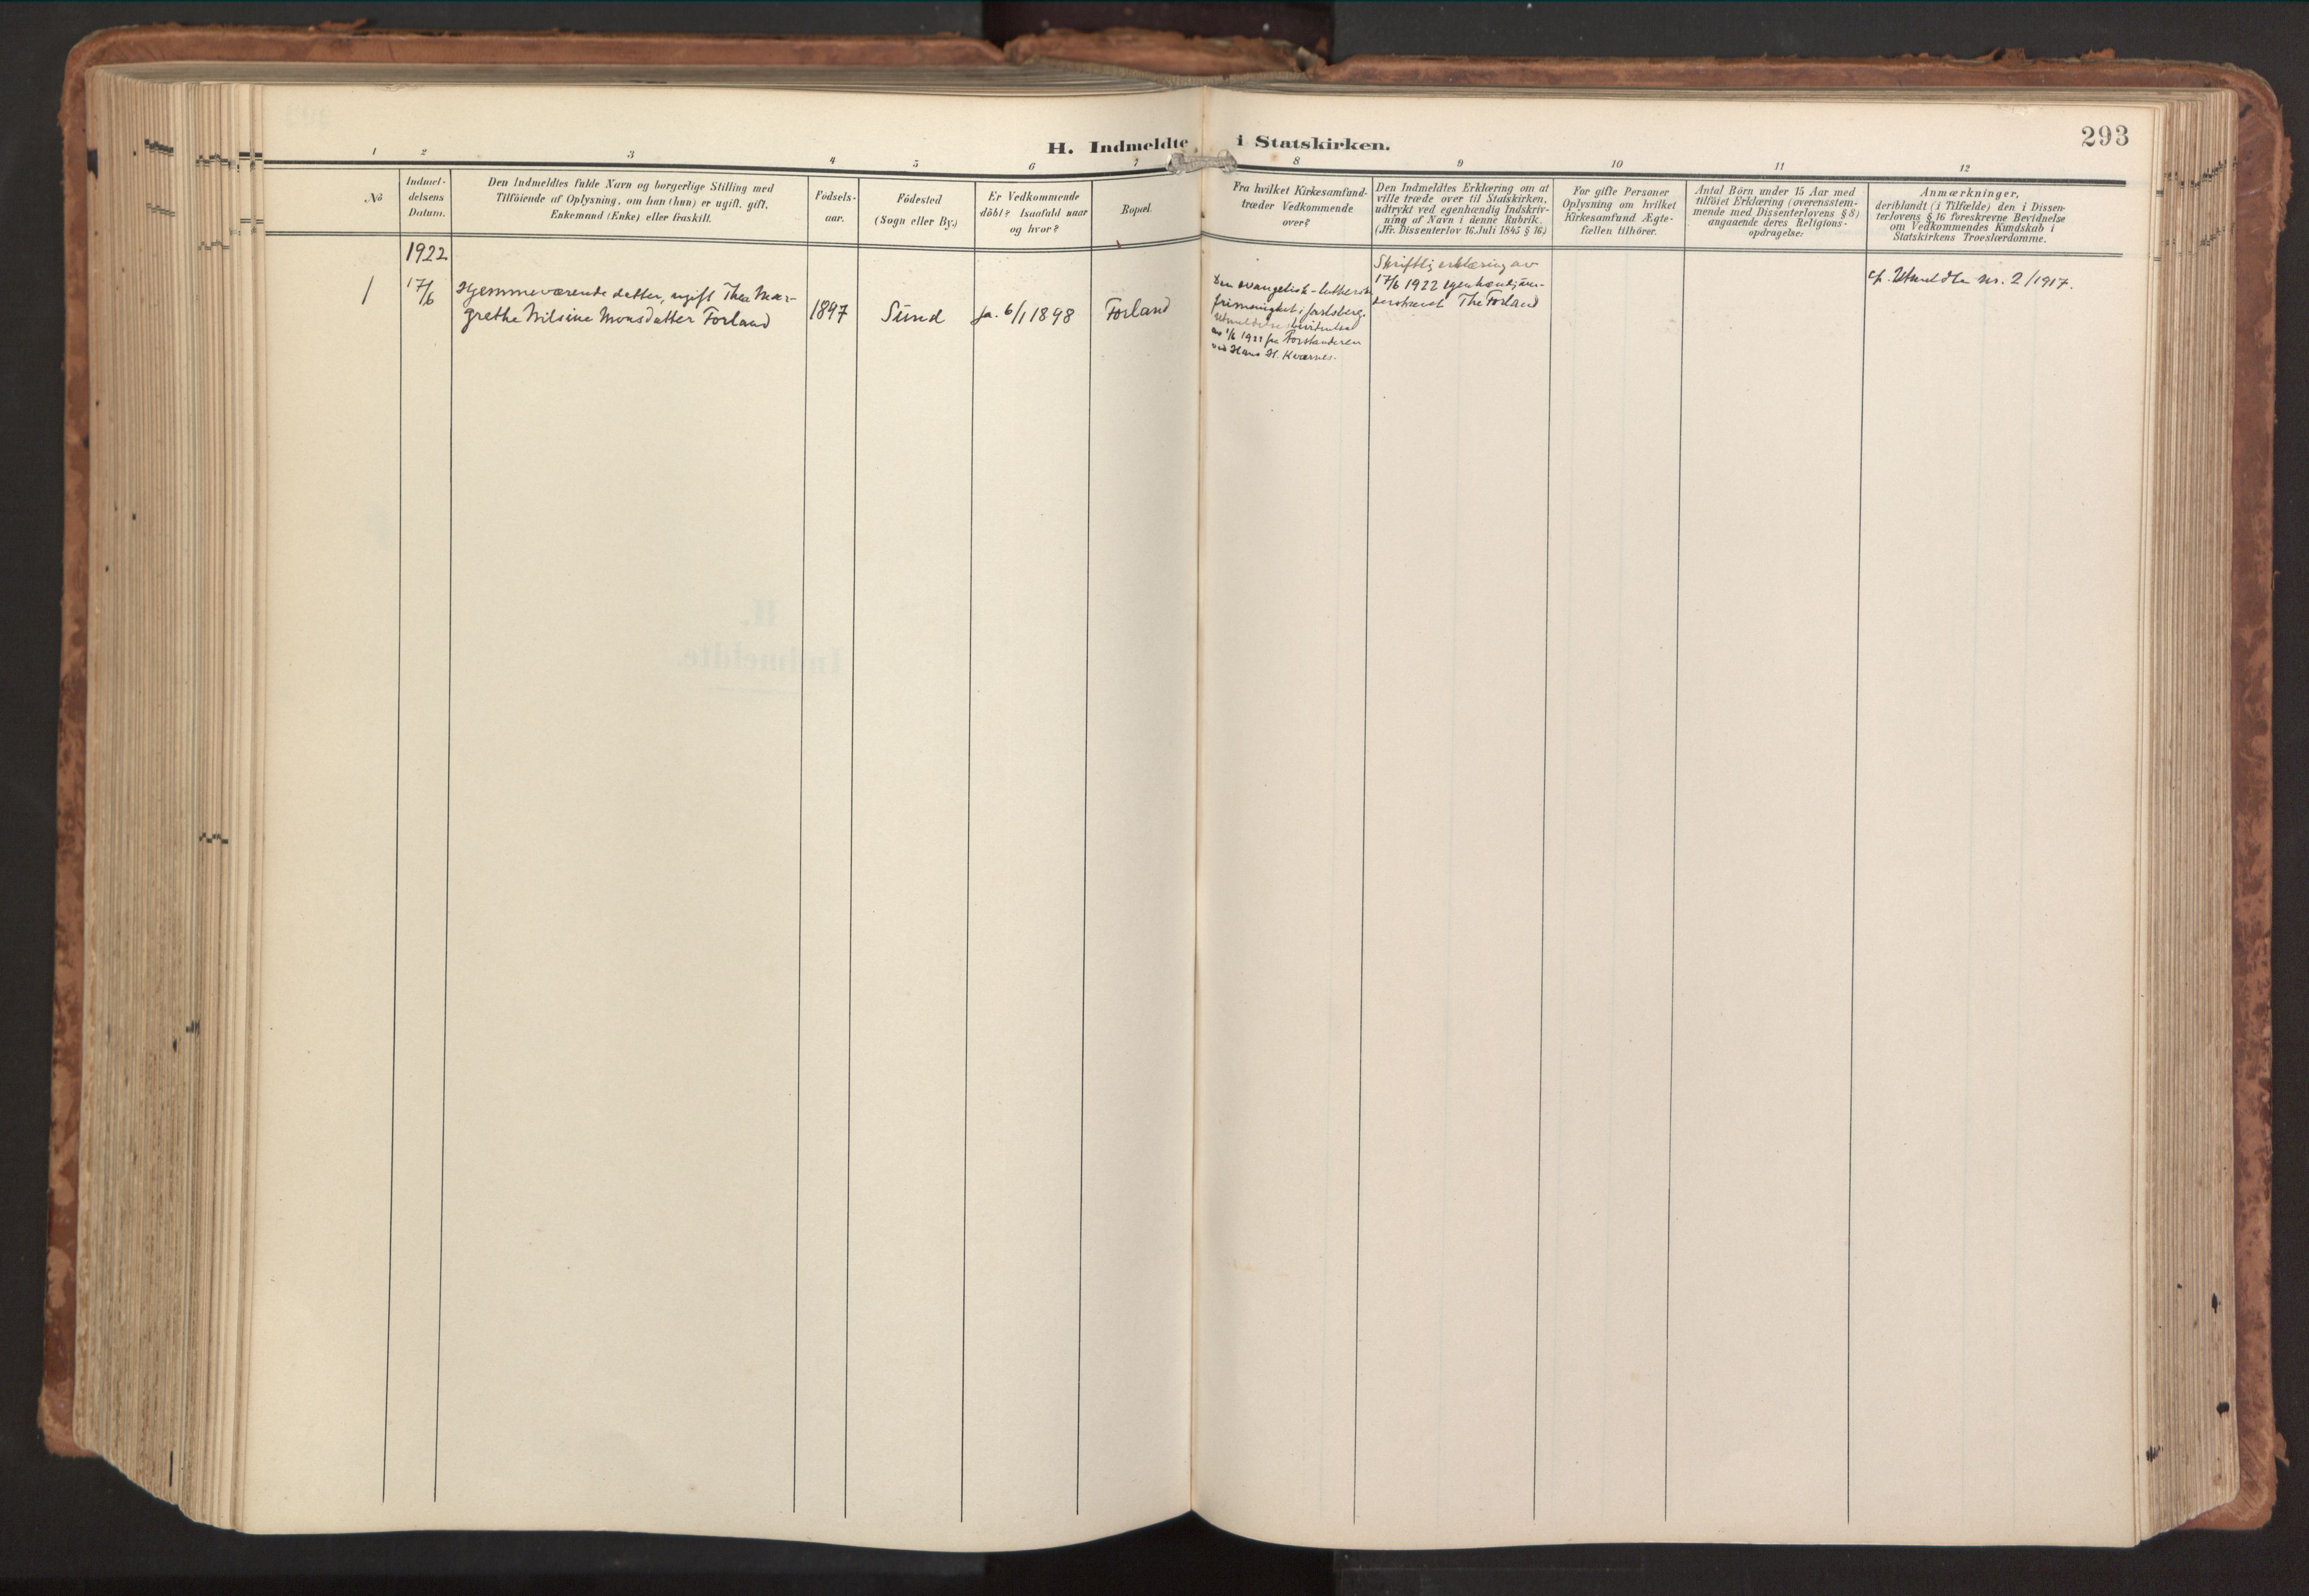 293
H. Indmeldte i Statskirken.
1 2 3 4 5 6 7 8 9 10 11 12
No
Indmel-
delsens
Datum.
Den Indmeldtes fulde Navn og borgerlige Stilling med
Tilföiende af Oplysning, om han (hun) er ugift, gift,
Enkemand (Enke) eller fraskilt.
Födsels-
aar.
Födested
(Sogn eller By.)
Er Vedkommende
döbt? Isaafald naar
og hvor?
Bopæl.
Fra hvilket Kirkesamfund
træder Vedkommende
over?
Den Indmeldtes Erklæring om at
ville træde over til Statskirken,
udtrykt ved egenhændig Indskriv-
ning af Navn i denne Rubrik.
(Jfr. Dissenterlov 16 Juli 1845 § 16)
For gifte Personer
Oplysning om hvilket
Kirkesamfund Ægte-
fællen tilhörer.
Antal Börn under 15 Aar med
tilföiet Erklæring (overensstem-
mende med Dissenterlovens § 8)
angaaende deres Religions-
opdragelse:
Anmærkninger,
deriblandt (i Tilfælde) den i Dissen-
terlovens § 16 foreskrevne Bevidnelse
om Vedkommendes Kundskab i
Statskirkens Troeslærdomme.
1922
1
17/6
Hjemmeværende datter, ugift Thea Mar-
grethe Nilsine Monsdatter Forland
1897
Sund
ja. 6/1 1898
Forland
Den evangelisk-luthersk
frimenighet i Jarlsberg.
Utmeldelsesbevidnelse
1922 fra Forstanderen
Hans H. Kværnes.
Skriftlig erklæring av
17/6 1922 egenhændig un-
derskrevet Thea Forland
cf. Utmeldte nr. 2/1917.
H.
Indmeldte.